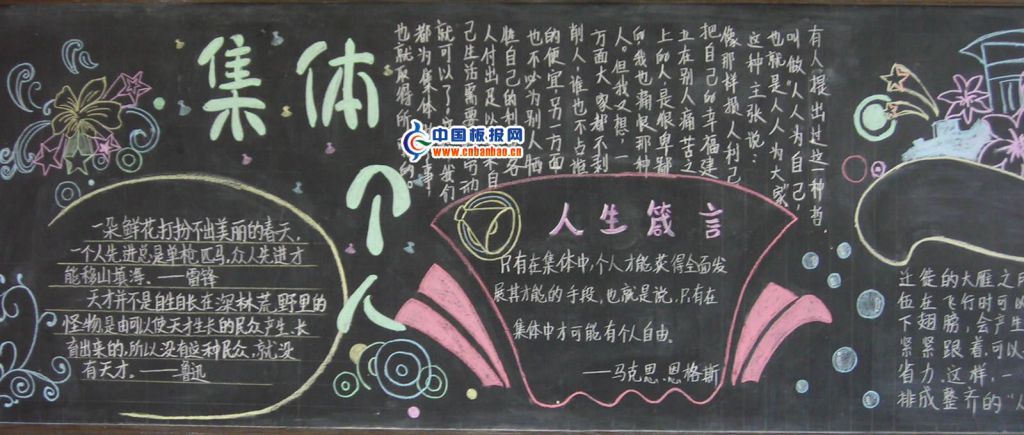 集体
个人
一朵鲜花打扮不出美丽的春天,
一个人先进总是单枪匹马,众人先进才
能移山填海。——雷锋
天才并不是自生自长在深林荒野里的
怪物,是由可以使天才生长的民众产生、长
育出来的,所以没有这种民众,就没
有天才。——鲁迅
中国板报网
www.cnbanbao.cn
有人提出过这一种
叫做"人人为自己,
也就是人人为大家
这种主张说:
像那样损人利己
把自己的幸福建
立在别人痛苦之
上的人是很卑鄙
的我也痛恨那种
人。但我又想,一
方面大家都不剥
削人谁也不占谁
的便宜,另一方面
也不必为别人牺
人生箴言
只有在集体中,个人才能获得全面发
展其才能的手段,也就是说,只有在
集体中才可能有个人自由。
——马克思 恩格斯
迁徙的大雁之所
伍在飞行时可以
下翅膀,会产生
紧紧跟着,可以
省力,这样,一
排成整齐的"人